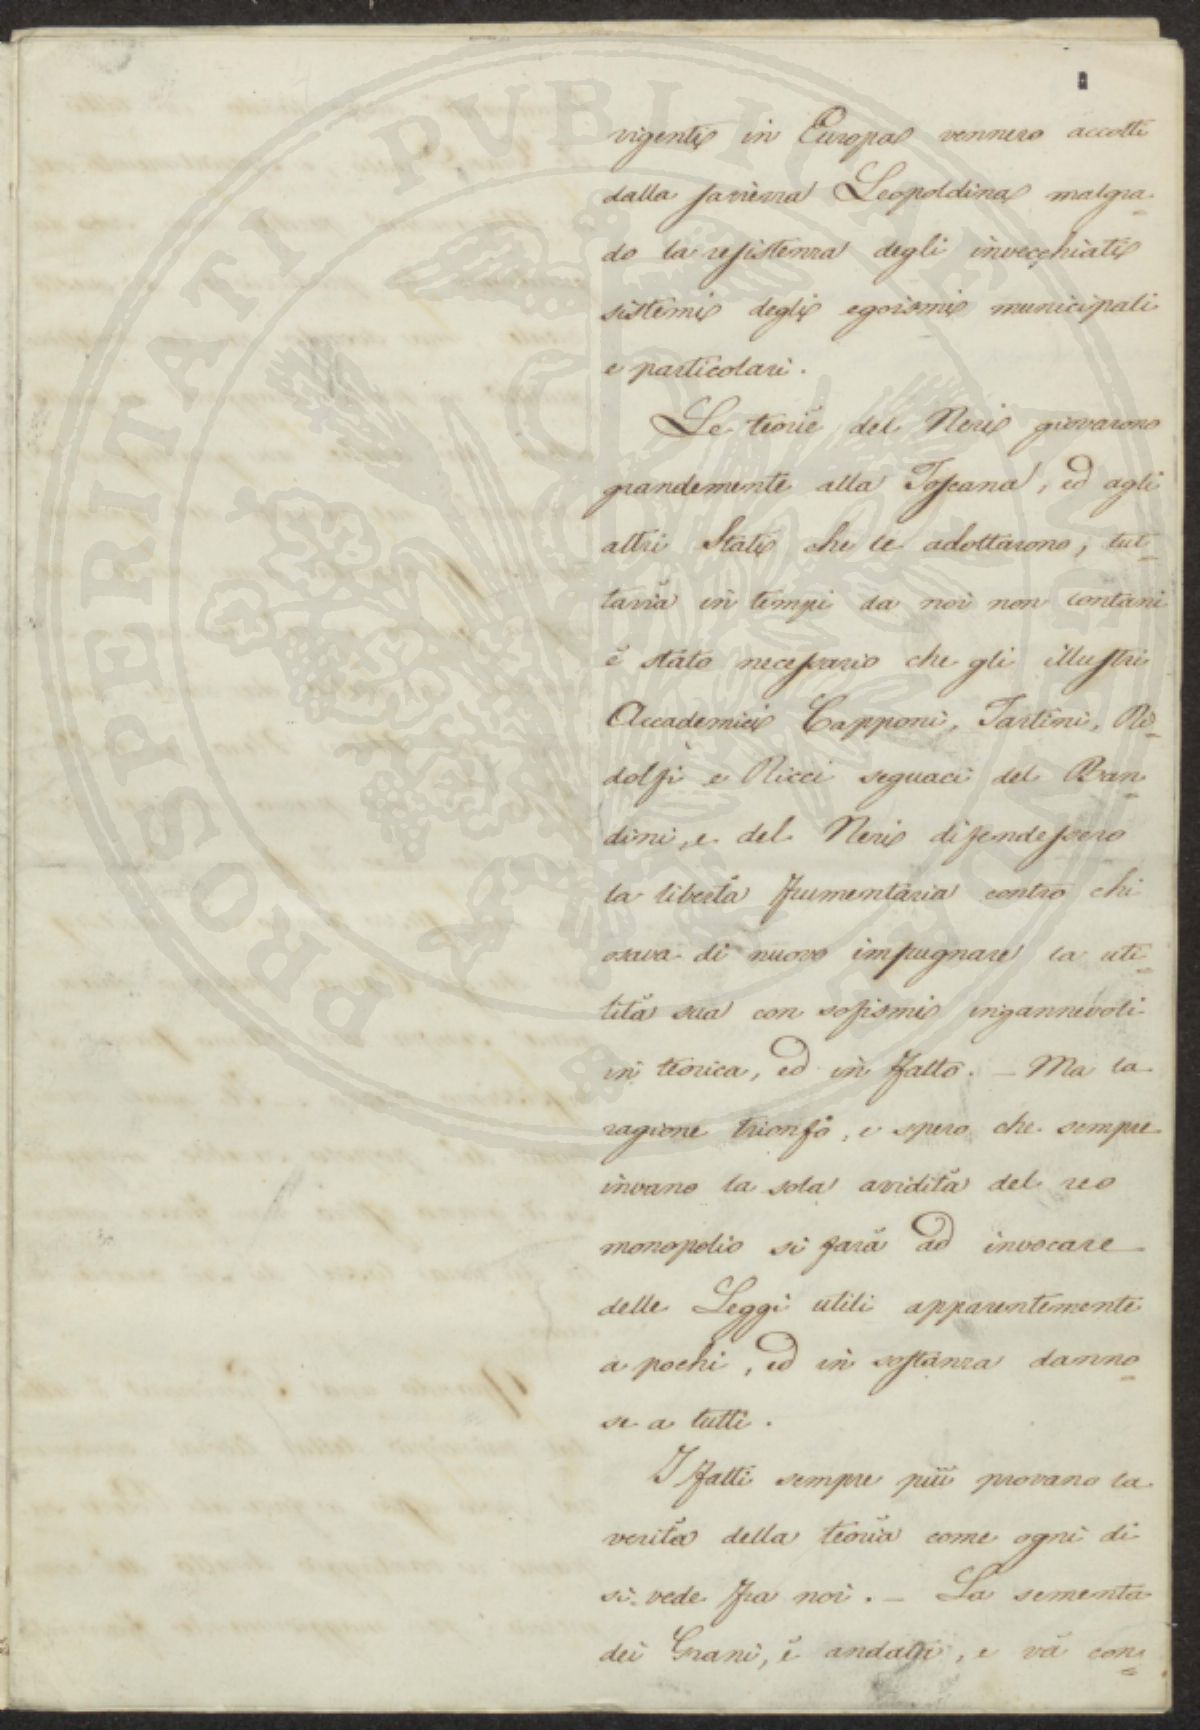 vigenti in Europa vennero accolti
dalla saviezza Leopoldina malgra-
do la resistenza degli invecchiati
sistemi degli egoismi municipali
e particolari.
Le teorie del Neri giovarono
grandemente alla Toscana, ed agli
altri Stati che le adottarono, tut-
tavia in tempi da noi non lontani
è stato necessario che gli illustri
Accademici Capponi, Tartini, Ri-
dolfi e Ricci seguaci del Ban-
dini, e del Neri difendessero
la libertà frumentaria contro chi
osava di nuovo impugnare la uti-
lità sua con sofismi ingannevoli
in teorica, ed in fatto. – Ma la
ragione trionfò, e spero che sempre
invano la sola avidità del reo
monopolio si farà ad invocare
delle Leggi utili apparentemente
a pochi, ed in sostanza danno-
se a tutti.
I fatti sempre più provano la
verità della teoria come ogni dì
si vede fra noi. – La sementa
dei Grani, è andata, e và con-
PROSPERITATI PUBLICAE AUGENDAE